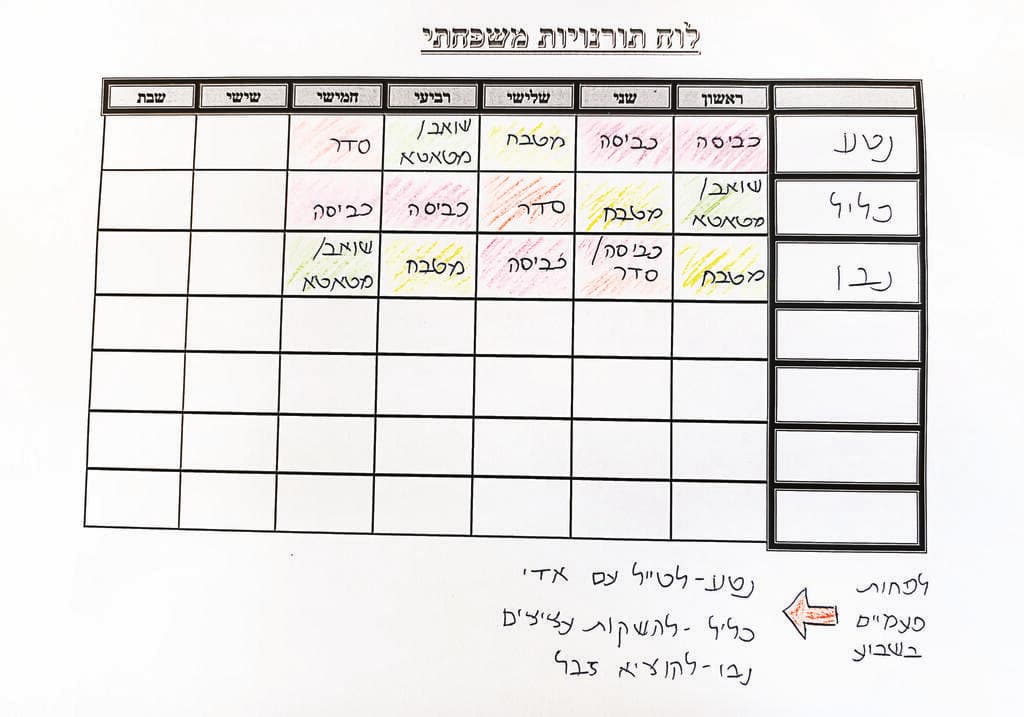 לוח תורנויות משפחתי
ראשון שני שלישי רביעי חמישי שישי שבת
נטע כביסה כביסה מטבח שואב/ סדר
מטאטא
כליל שואב/ מטבח סדר כביסה כביסה
מטאטא
נבו מטבח כביסה/ כביסה מטבח שואב/
סדר מטאטא
לפחות
פעמיים
בשבוע
נטע - לטייל עם אדי
כליל - להשקות עציצים
נבו - להוציא זבל